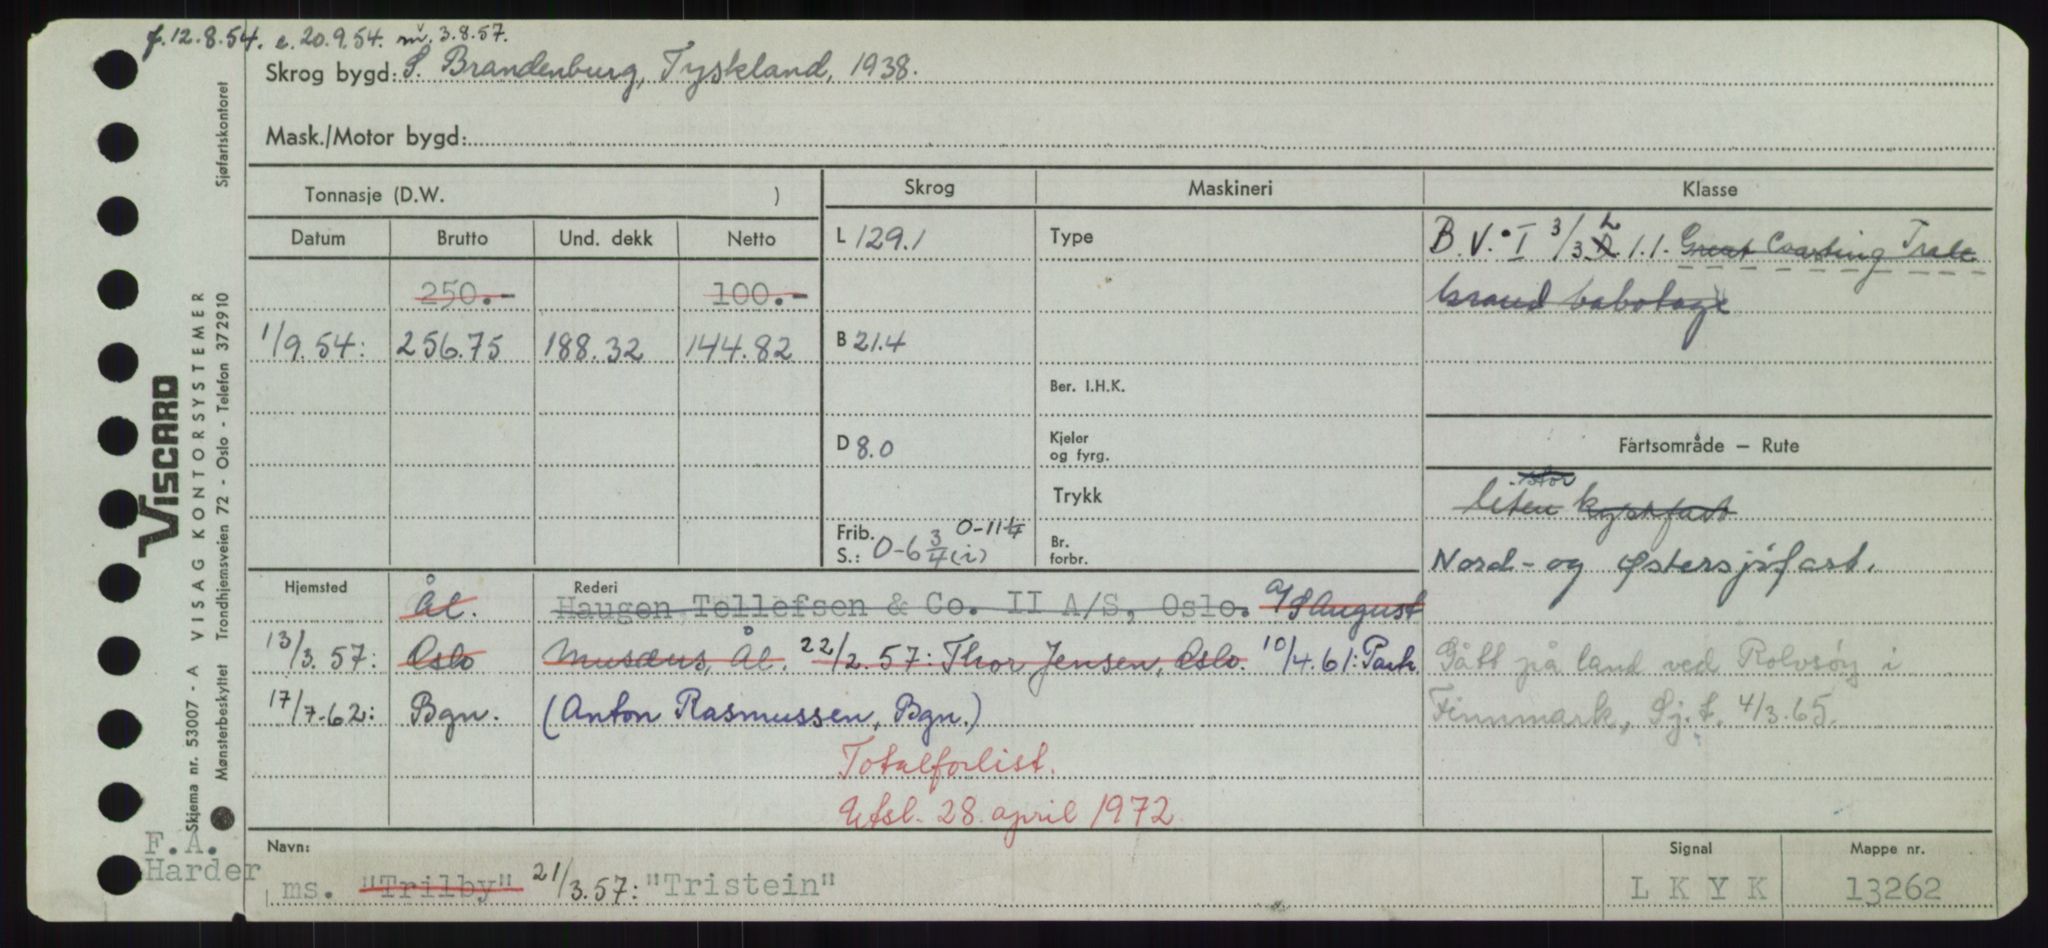 f. 12.8.54. e. 20.9.54. m. 3.8.57.
Skrog bygd: S. Brandenburg, Tyskland, 1938.
Mask./Motor bygd:
Tonnasje (D.W. )
Skrog Maskineri Klasse
Datum Brutto Und. dekk Netto
L 129.1 Type B.V. I 3/3 L 1.1. Great Coasting Trade
250.- 100.-
Grand Cabotage
1/9.54: 256.75 188.32 144.82 B 21.4
Ber. I.H.K.
D 8.0 Kjeler og fyrg. Fartsområde – Rute
Trykk stor
liten kystfart
Frib. S.: 0-6 3/4 (i) 0-11 1/4 Br. forbr.
Nord- og Østersjøfart.
Hjemsted Rederi
Ål. Haugen Tellefsen & Co. II A/S, Oslo. a/S August
13/3.57: Oslo Musæus, Ål. 22/2.57: Thor Jensen, Oslo. 10/4.61: Partr.
Gått på land ved Rolvsøy i
17/7-62: Bgn. (Anton Rasmussen, Bgn.)
Finnmark, Sj.f. 4/3.65.
Totalforlist.
Utsl. 28. april 1972
Navn: Signal Mappe nr.
ms. "Trilby" 21/3.57: "Tristein" L K Y K 13262
F.A.
Harder
VISCARD
Skjema nr. 53007 - A VISAG KONTORSYSTEMER
Mønsterbeskyttet Trondhjemsveien 72 - Oslo - Telefon 372910 Sjøfartskontoret